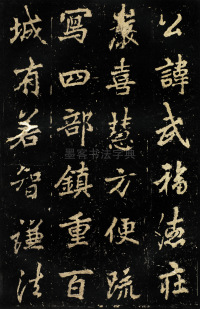 公諱武福德莊
嚴喜慧方便疏
寫四部鎮重百
城有若智謙法
墨客书法字典